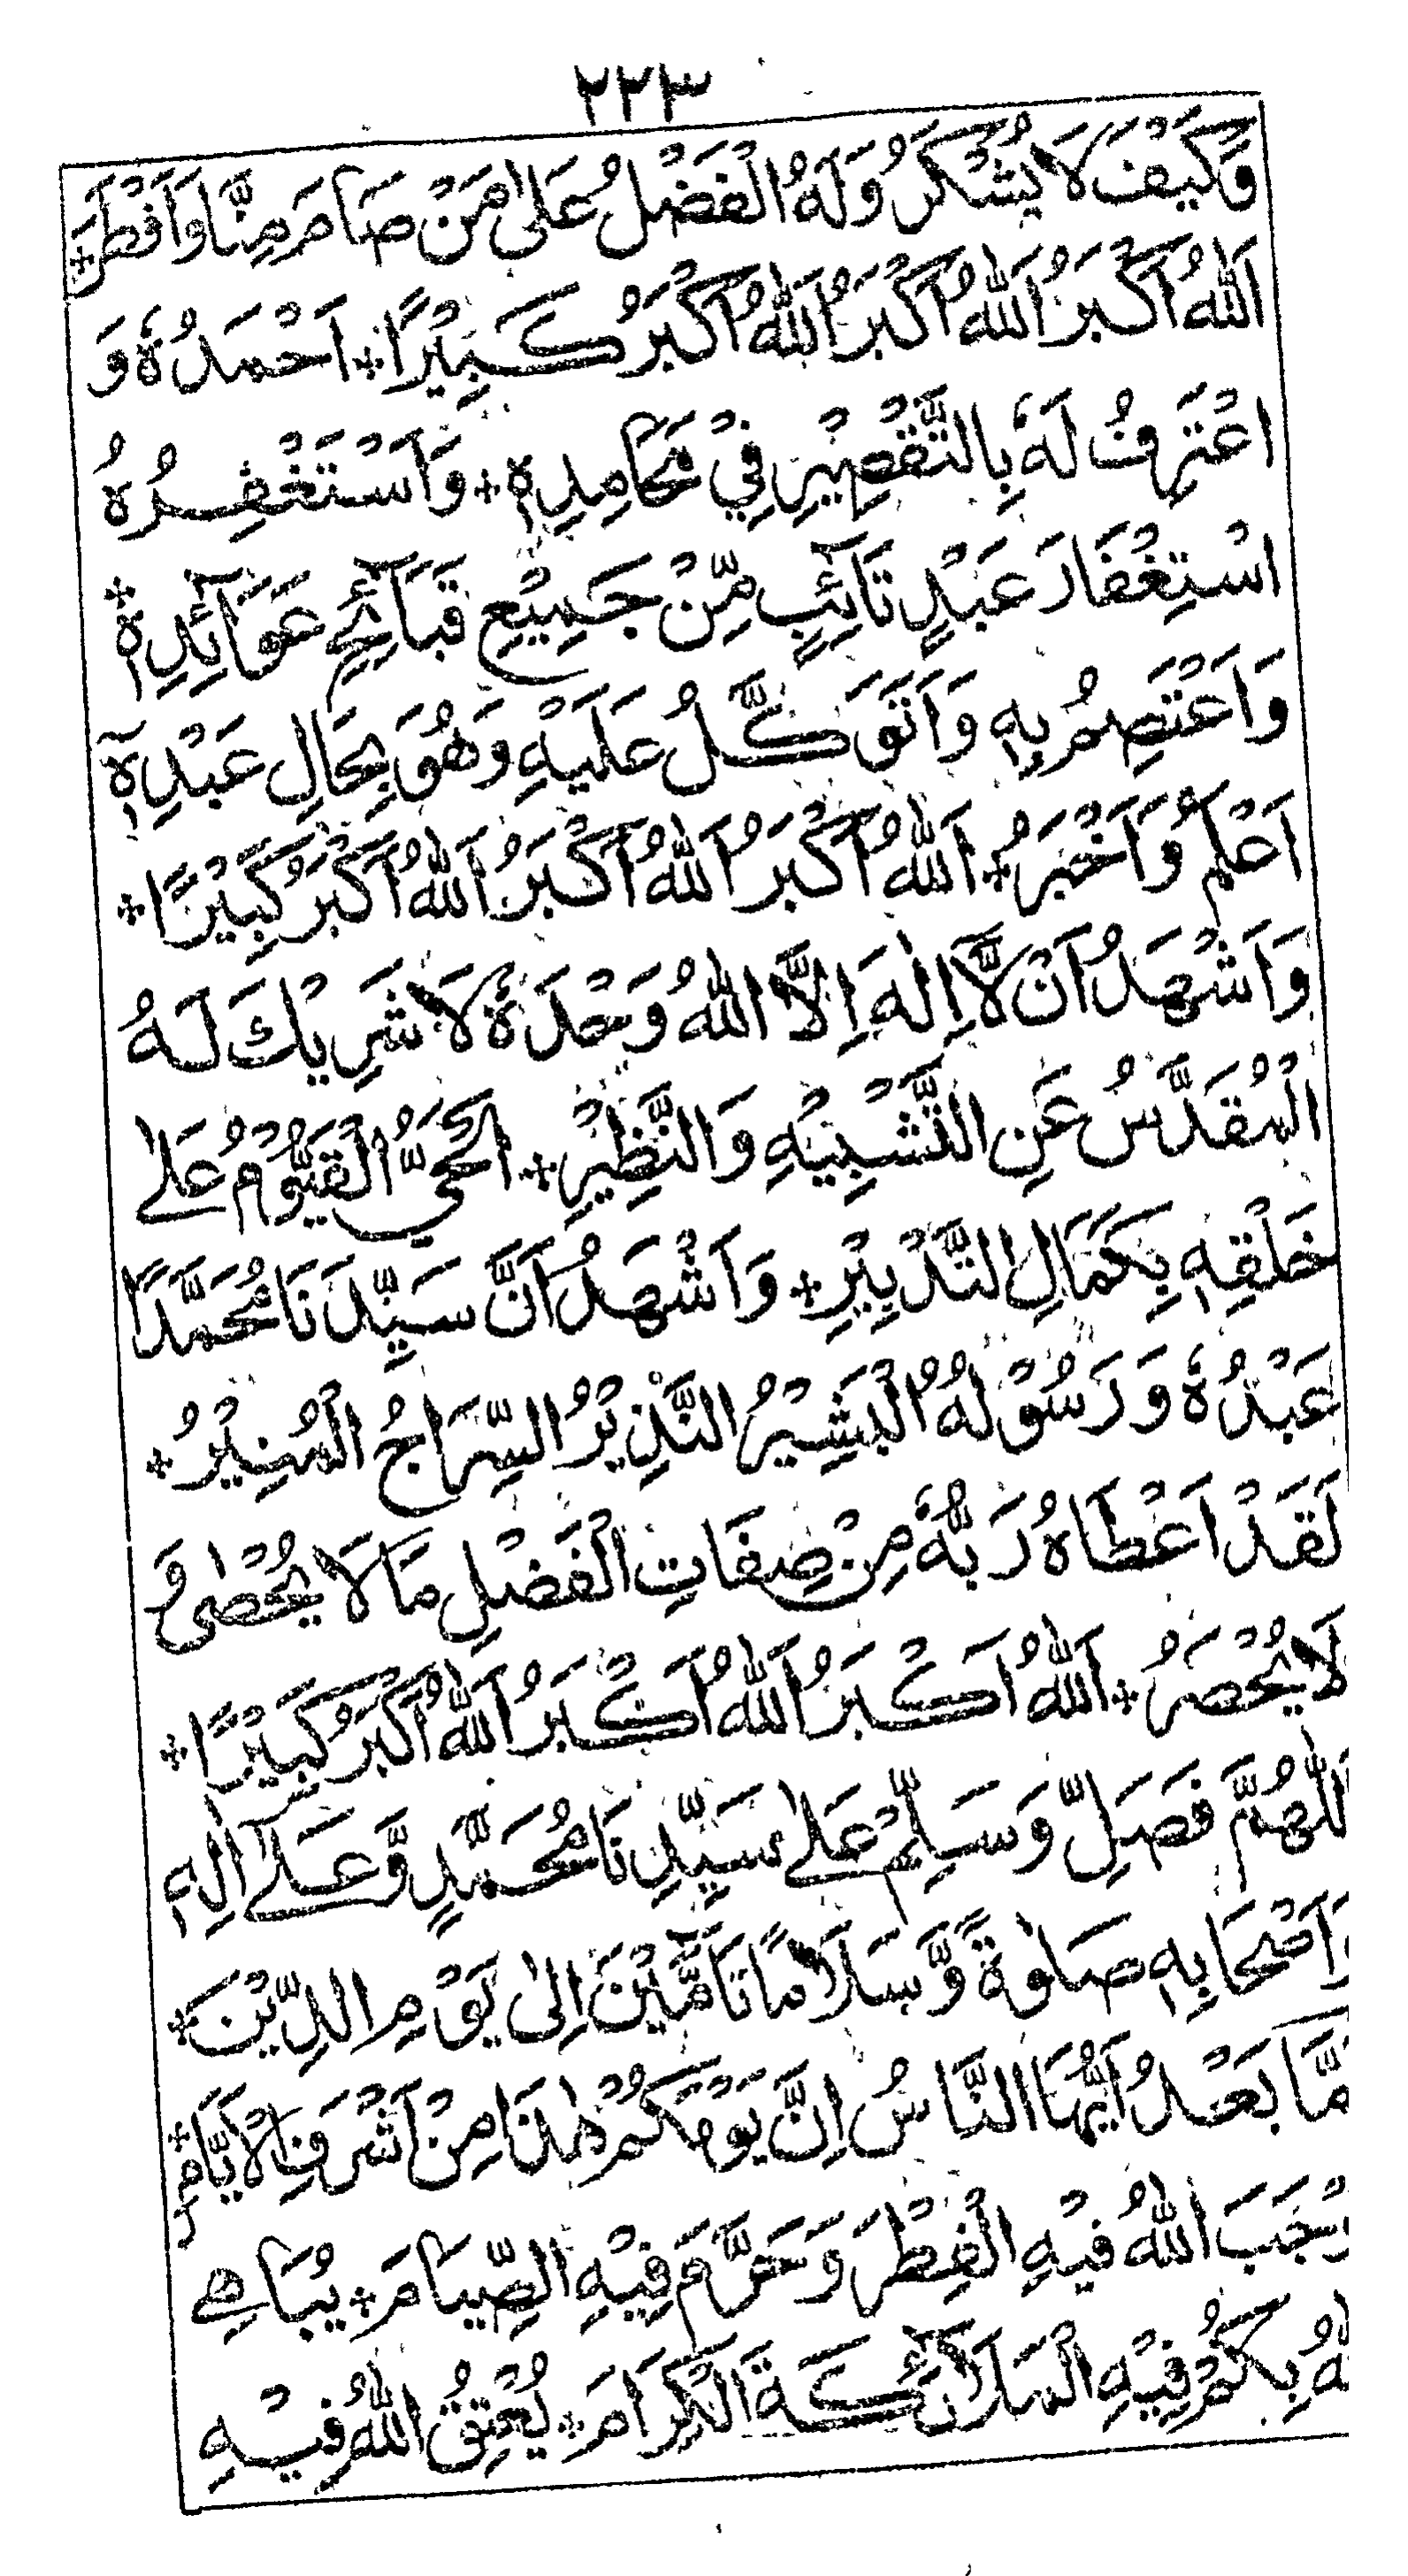 ٢٢٣
وَكَيْفَ لَا يُشْكَرُ وَلَهُ الْفَضْلُ عَلٰى مَنْ صَامَ مِنَّا وَاَفْطَرَ ۞
اَللّٰهُ اَكْبَرُ اَللّٰهُ اَكْبَرُ اَللّٰهُ اَكْبَرُ كَبِيْرًا ۞ اَحْمَدُهٗ وَ
اعْتَرِفُ لَهٗ بِالتَّقْصِيْرِ فِيْ مَحَامِدِهٖ ۞ وَاَسْتَغْفِرُهُ
اسْتِغْفَارَ عَبْدٍ تَائِبٍ مِّنْ جَمِيْعِ قَبَآئِحِ عَوَآئِدِهٖ ۞
وَاَعْتَصِمُ بِهٖ وَاَتَوَكَّلُ عَلَيْهِ وَهُوَ بِحَالِ عَبْدِهٖٓ
اَعْلَمُ وَاَخْبَرُ ۞ اَللّٰهُ اَكْبَرُ اَللّٰهُ اَكْبَرُ اَللّٰهُ اَكْبَرُ كَبِيْرًا ۞
وَاَشْهَدُ اَنْ لَّاۤ اِلٰهَ اِلَّا اللّٰهُ وَحْدَهٗ لَا شَرِيْكَ لَهُ
الْمُقَدَّسُ عَنِ التَّشْبِيْهِ وَالنَّظِيْرِ ۞ الْحَيُّ الْقَيُّوْمُ عَلٰى
خَلْقِهٖ بِكَمَالِ التَّدْبِيْرِ ۞ وَاَشْهَدُ اَنَّ سَيِّدَنَا مُحَمَّدًا
عَبْدُهٗ وَرَسُوْلُهُ الْبَشِيْرُ النَّذِيْرُ السِّرَاجُ الْمُنِيْرُ ۞
لَقَدْ اَعْطَاهُ رَبُّهٗ مِنْ صِفَاتِ الْفَضْلِ مَا لَا يُحْصٰى وَ
لَا يُحْصَرُ ۞ اَللّٰهُ اَكْبَرُ اَللّٰهُ اَكْبَرُ اَللّٰهُ اَكْبَرُ كَبِيْرًا ۞
اَللّٰهُمَّ فَصَلِّ وَسَلِّمْ عَلٰى سَيِّدِنَا مُحَمَّدٍ وَّعَلٰٓى اٰلِهٖ
وَاَصْحَابِهٖ صَلٰوةً وَّسَلَامًا تَامَّيْنَ اِلٰى يَوْمِ الدِّيْنَ ۞
مَّا بَعْدُ اَيُّهَا النَّاسُ اِنَّ يَوْمَكُمْ هٰذَا مِنْ اَشْرَفِ الْاَيَّامِ ۞
وْجَبَ اللّٰهُ فِيْهِ الْفِطْرَ وَحَرَّمَ فِيْهِ الصِّيَامَ ۞ يُبَاهِي
لّٰهُ بِكُمْ فِيْهِ الْمَلَآئِكَةَ الْكِرَامَ ۞ يُعْتِقُ اللّٰهُ فِيْهِ